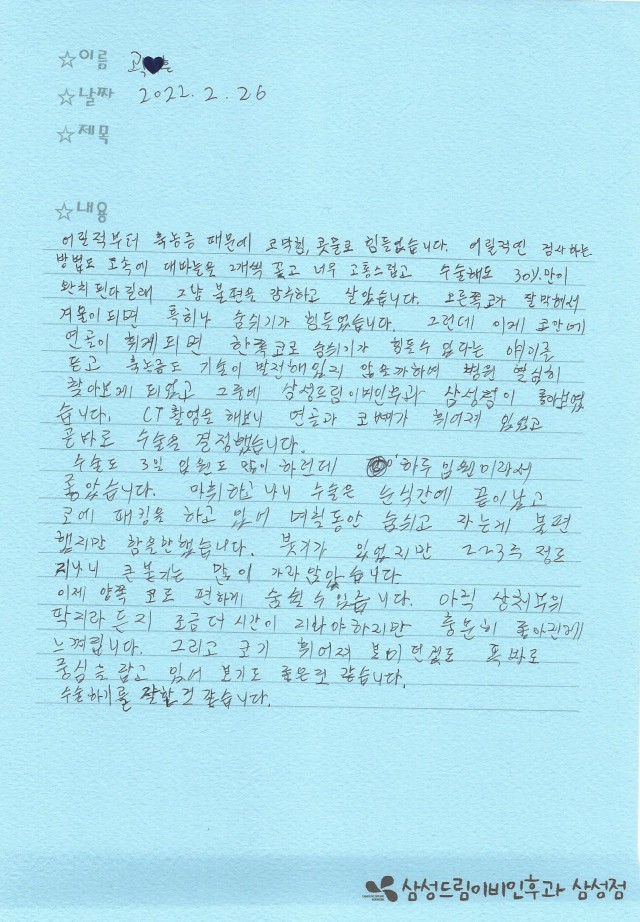 ☆이름 고♥훈
☆날짜 2022. 2. 26
☆제목
☆내용
어릴적부터 축농증 때문에 코막힘, 콧물로 힘들었습니다. 어릴적엔 검사하는
방법도 코속에 대바늘을 2개씩 꽂고 너무 고통스럽고 수술해도 30%만이
완치 된다길래 그냥 불편을 감수하고 살았습니다. 오른쪽코가 잘막혀서
겨울이되면 특히나 숨쉬기가 힘들었습니다. 그런데 이게 코안에
연골이 휘게되면 한쪽코로 숨쉬기가 힘들수 있다는 얘기를
듣고 축농증도 기술이 발전해있지 않을까하여 병원 열심히
찾아보게 되었고 그중에 삼성드림이비인후과 삼성점이 좋아보였
습니다. CT촬영을 해보니 연골과 코뼈가 휘어져 있었고
곧바로 수술을 결정했습니다.
수술도 3일 입원도 많이 하던데 하루 입원이라서
좋았습니다. 마취하고나니 수술은 순식간에 끝이났고
코에 패킹을 하고 있어 며칠동안 숨쉬고 자는게 불편
했지만 참을만했습니다. 붓기가 있었지만 2~3주 정도
지나니 큰붓기는 많이 가라앉았습니다
이제 양쪽 코로 편하게 숨쉴 수 있습니다. 아직 상처부위
딱지라든지 조금 더 시간이 지나야하지만 충분히 좋아진게
느껴집니다. 그리고 코가 휘어져 보이던것도 똑바로
중심을 잡고 있어 보기도 좋은것 같습니다.
수술하기를 잘한 것 같습니다.
삼성드림이비인후과 삼성점